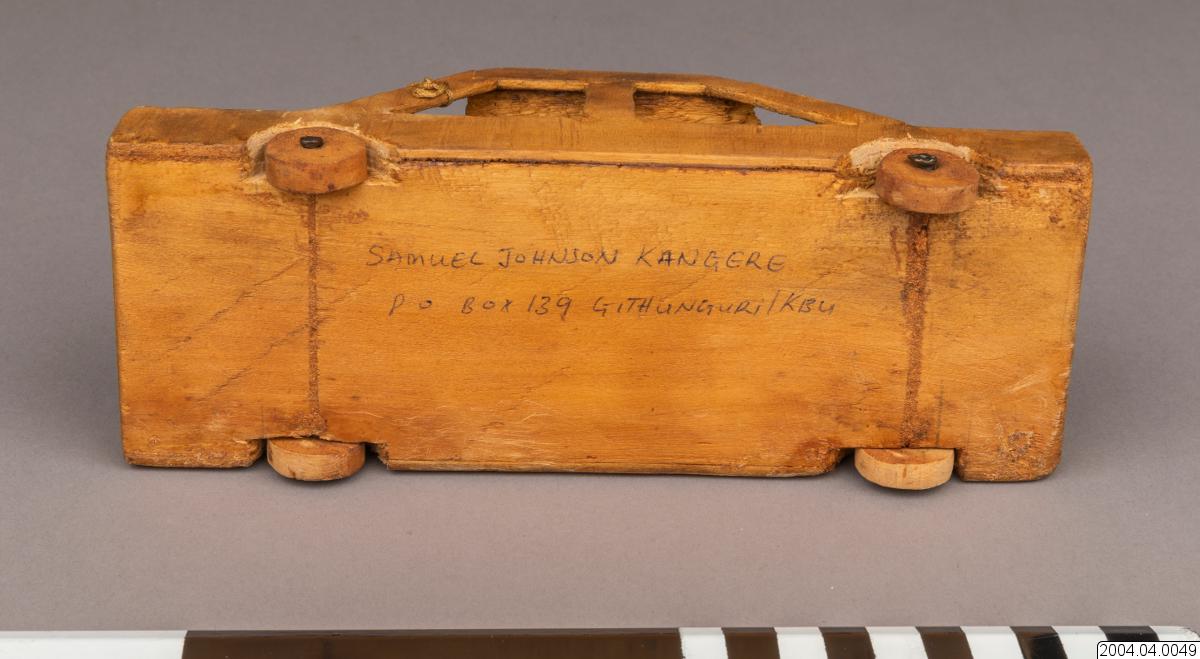 SAMUEL JOHNSON KANGERE
P O BOX 139 GITHUNGURI/KBU
2004.04.0049